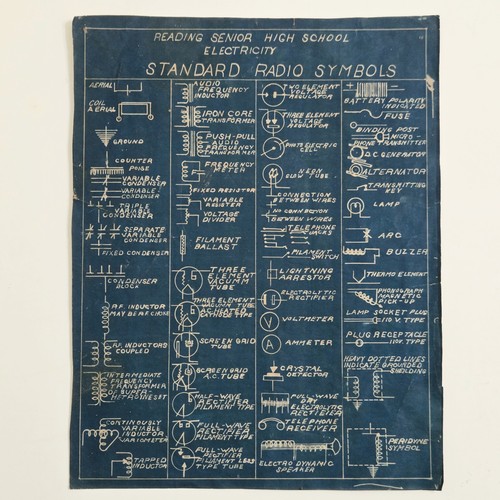 READING SENIOR HIGH SCHOOL
ELECTRICITY
STANDARD RADIO SYMBOLS
AERIAL
COIL
AERIAL
GROUND
COUNTER
POISE
VARIABLE
CONDENSER
VARIABLE
CONDENSER
TRIPLE
CONDENSER
SEPARATE
VARIABLE
CONDENSER
FIXED CONDENSER
CONDENSER
BLOCK
R.F. INDUCTOR
MAY BE R.F. CHOKE
R.F. INDUCTORS
COUPLED
INTERMEDIATE
FREQUENCY
TRANSFORMER
OF SUPER-
HETRODYNE SET
CONTINOUSLY
VARIABLE
INDUCTOR
VARIOMETER
TAPPED
INDUCTOR
AUDIO
FREQUENCY
INDUCTOR
IRON CORE
TRANSFORMER
PUSH-PULL
AUDIO
FREQUENCY
TRANSFORMER
FREQUENCY
METER
FIXED RESISTOR
VARIABLE
RESISTOR
VOLTAGE
DIVIDER
FILAMENT
BALLAST
THREE
ELEMENT
VACUUM
TUBE
THREE ELEMENT
VACUUM TUBE
TYPE
SCREEN GRID
TUBE
SCREEN GRID
A.C. TUBE
HALF-WAVE
RECTIFIER
FILAMENT TYPE
FULL-WAVE
RECTIFIER
FILAMENT TYPE
FULL-WAVE
RECTIFIER
FILAMENT LESS
TYPE TUBE
TWO ELEMENT
VOLTAGE
REGULATOR
THREE ELEMENT
VOLTAGE
REGULATOR
PHOTO ELECTRIC
CELL
NEON
GLOW TUBE
CONNECTION
BETWEEN WIRES
NO CONNECTION
BETWEEN WIRES
TELEPHONE
JACKS
FILAMENT
SWITCH
LIGHTNING
ARRESTOR
ELECTROLYTIC
RECTIFIER
V
VOLTMETER
A
AMMETER
CRYSTAL
DETECTOR
FULL-WAVE
DRY
ELECTROLYTIC
RECTIFIER
TELEPHONE
RECEIVER
ELECTRO DYNAMIC
SPEAKER
BATTERY POLARITY
INDICATED
FUSE
BINDING POST
MICRO-
PHONE TRANSMITTER
D.C. GENERATOR
ALTERNATOR
TRANSMITTING
KEY
LAMP
ARC
BUZZER
THERMO ELEMENT
PHONOGRAPH
MAGNETIC
PICK-UP
LAMP SOCKET PLUG
110 V. TYPE
PLUG RECEPTACLE
110V. TYPE
HEAVY DOTTED LINES
INDICATE GROUNDED
SHIELDING
PERIDYNE
SYMBOL